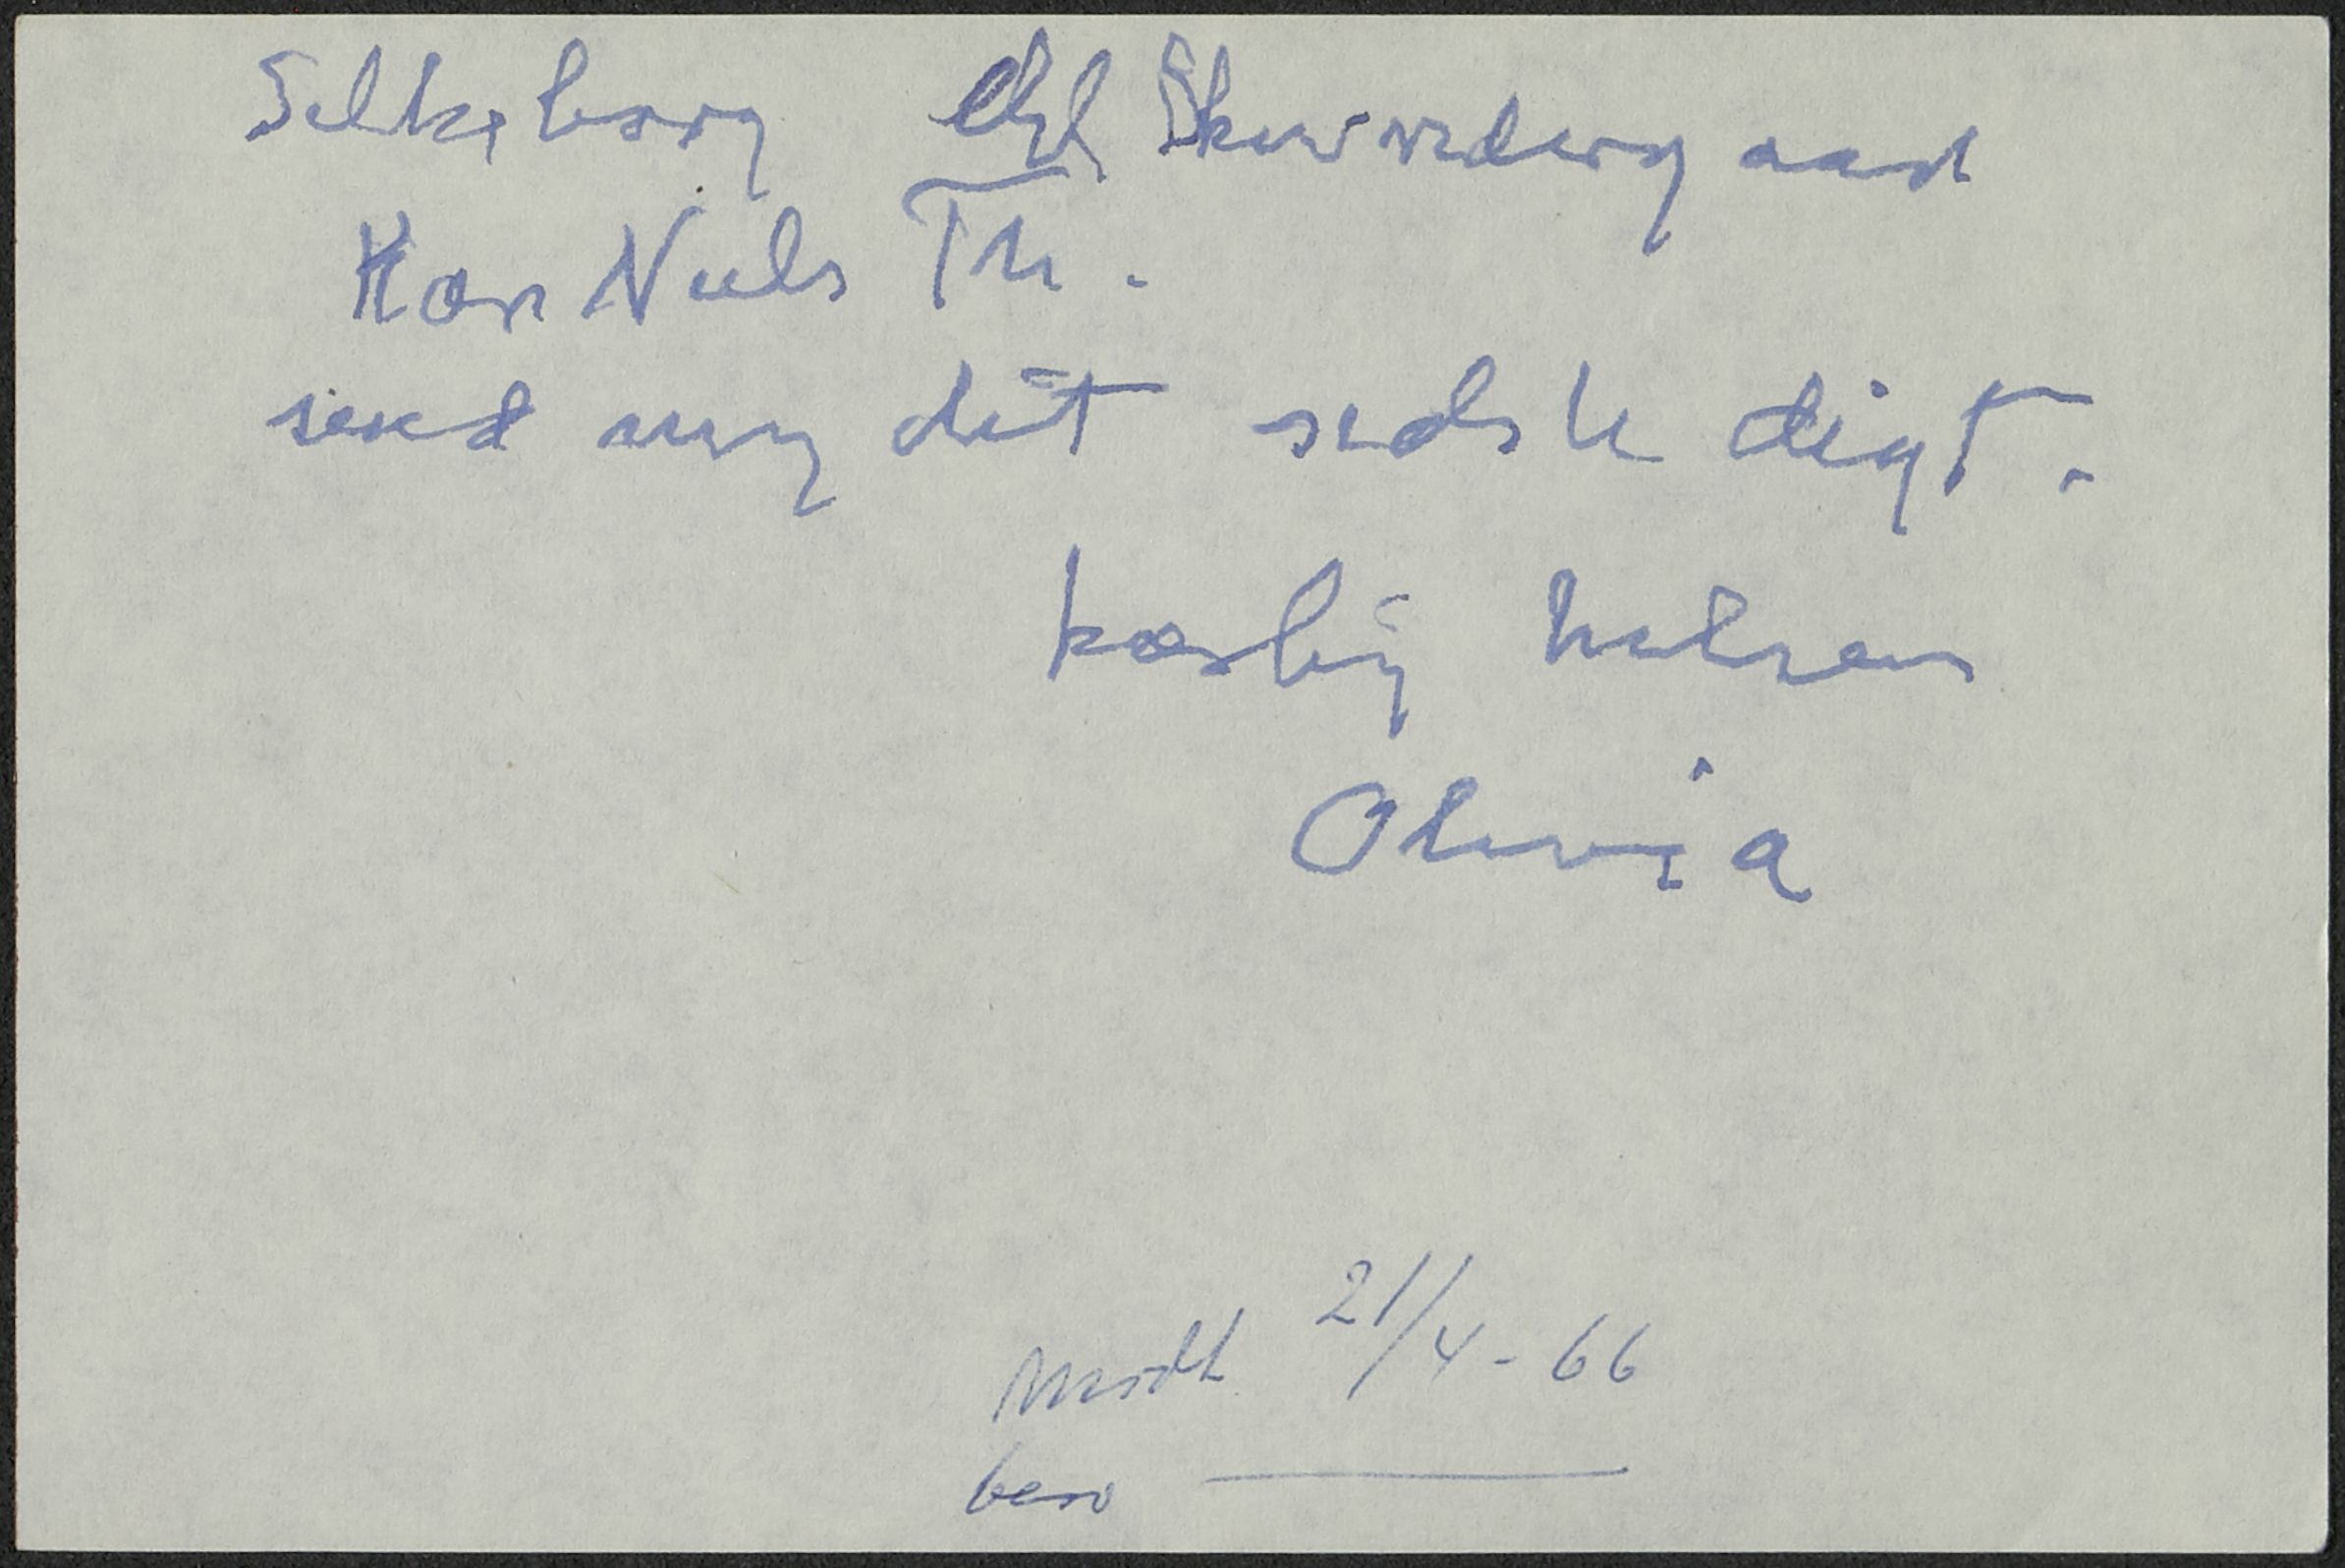 Silkeborg Skovridergaard
Kær Niels Th.
send mig dit sidste digt.
kærlig hilsen
Olivia
modt 21/4-66
besv